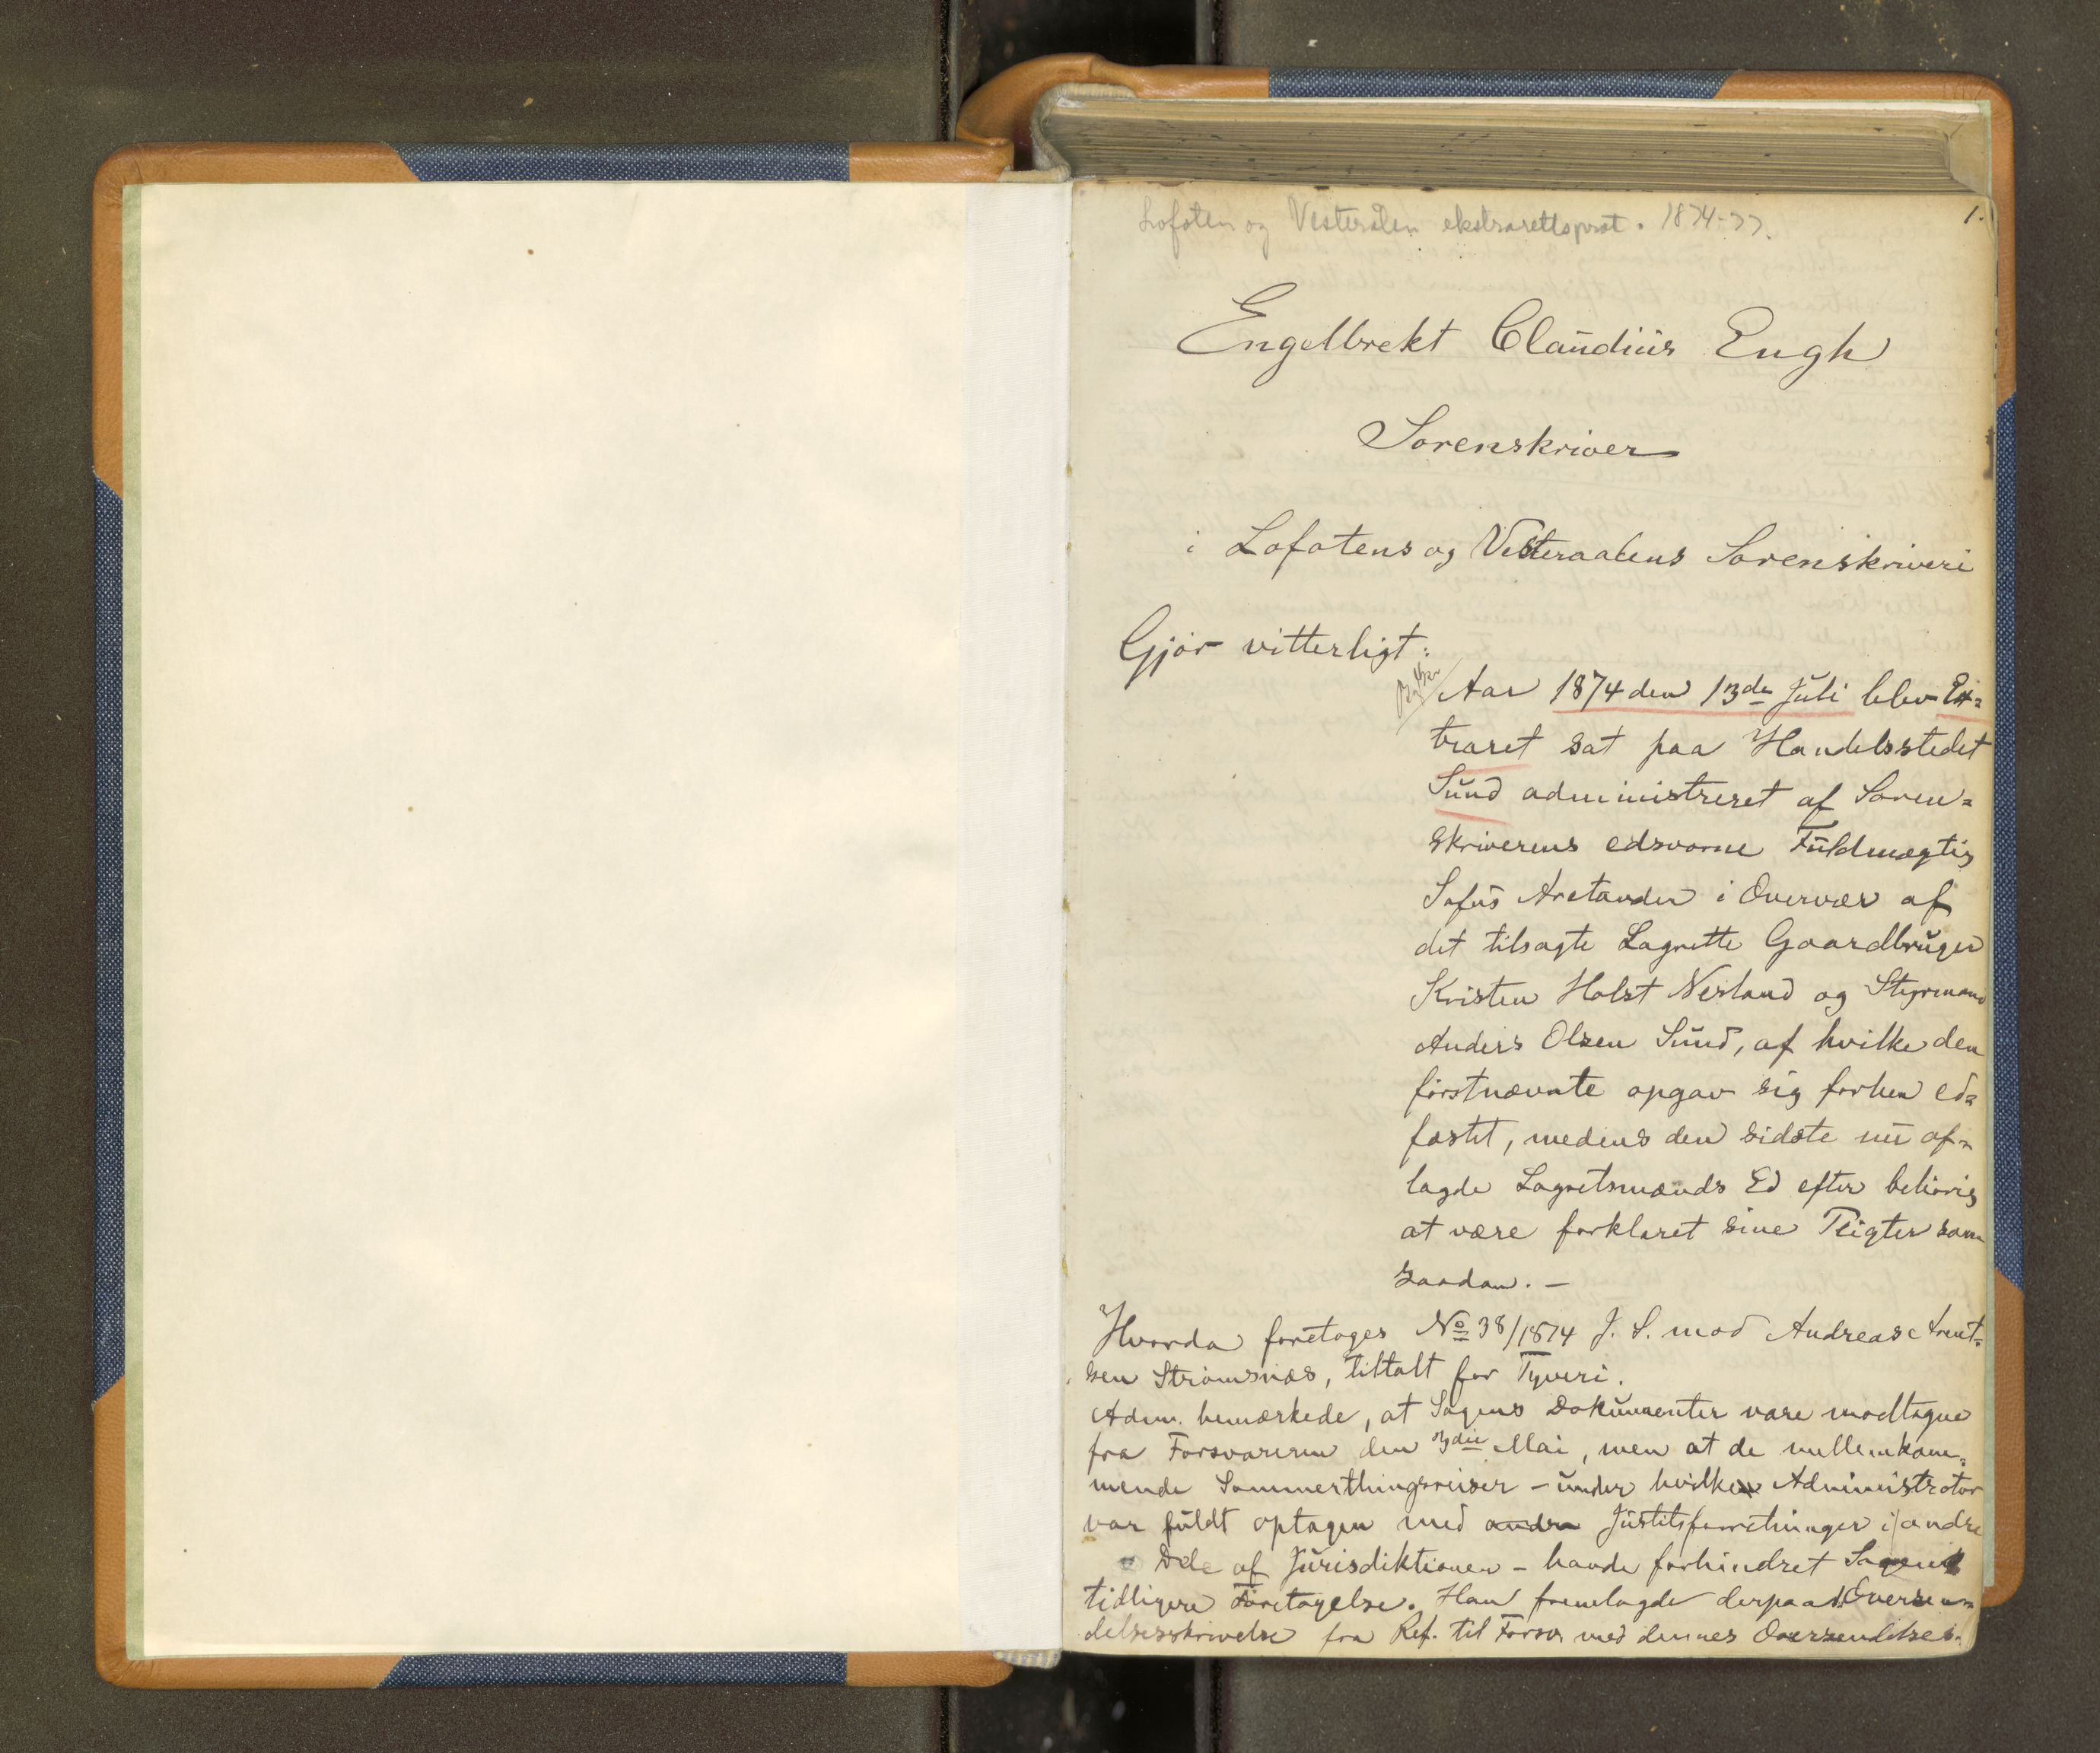 Lofoten og Vesterålen ekstrarettsprot. 1874-77.
1.
Engelbrekt Claudius Engh
Sorenskriver
i Lofotens og Vesteraalens Sorenskriveri
Gjør vitterligt:
Aar 1874 den 13de Juli blev Ex=
traret sat paa Handelsstedet
Sund administreret af Soren=
skriverens edsvorne Fuldmægtig
Sofus Arctander i Overvær af
det tilsagte Lagrette Gaardbruger
Kristen Holst Nesland og Styrmand
Anders Olsen Sund, af hvilke den
førstnævnte opgav sig forhen ed=
fæstet, medens den sidste nu af=
lagde Lagretsmænds Ed efter behørig
at være forklaret sine Pligter som
saadan. —
Hvorda foretoges No 38/1874 J. S. mod Andreas Arent=
sen Strømsnæs, tiltalt for Tyveri.
Adm. bemærkede, at Sagens Dokumenter vare modtagne
fra Forsvareren den 3die Mai, men at de mellemkom=
mende Sommerthingsreiser – under hvilke Administrator
var fuldt optagen med andre Justitsforretninger i andre
Dele af Jurisdiktionen – havde forhindret Sagens
tidligere Foretagelse. Han fremlagde derpaa 1. Oversen=
delsesskrivelse fra Ref. til Forsv. med dennes Oversendelses-